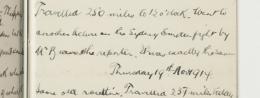 Travelled 250 miles to 12 o'clock. Went to
another lecture on the Sydney Emden fight by
Mr B the reporter. It was exactly the same
Thursday 19th Nov 1914.
Same old routine. Travelled 257 miles today